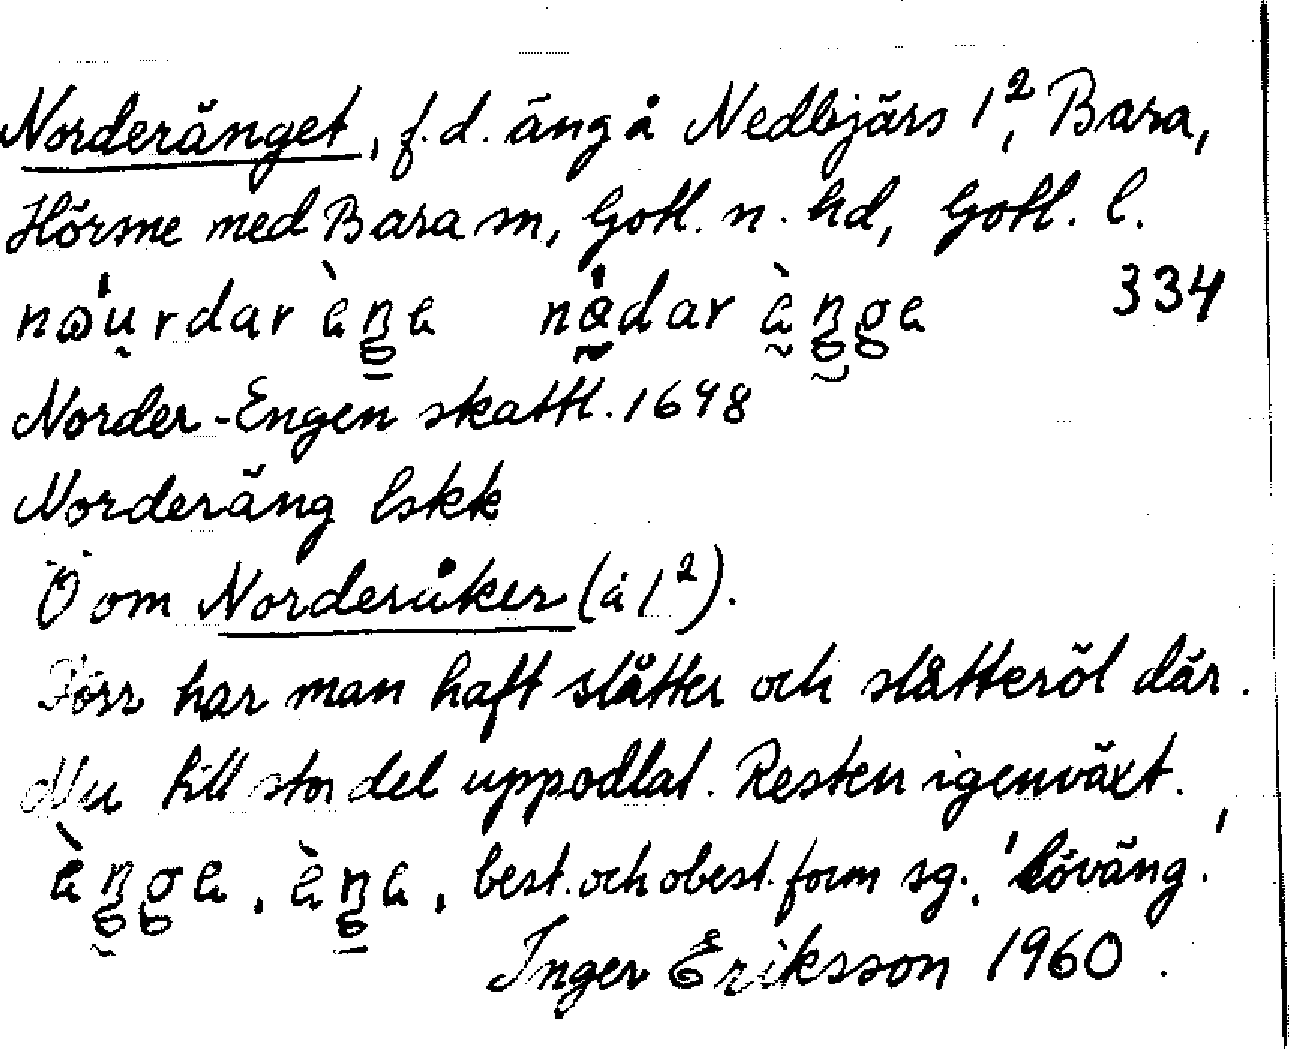 Norderänget, f.d. äng å Nedbjärs 1², Bara,
Hörsne med Bara sn, Gotl. n. hd, Gotl. l.
nǝu̯rdar ὲŋa nå̀dar ὲŋga 334
Norder-Engen skattl. 1648
Norderäng lskk
Ö om Norderåker (å 1²).
Förr har man haft slåtter och slåtteröl där.
Nu till stor del uppodlat. Resten igenväxt.
ὲŋga, ὲŋa, best. och obest. form sg., 'löväng.'
Inger Eriksson 1960.